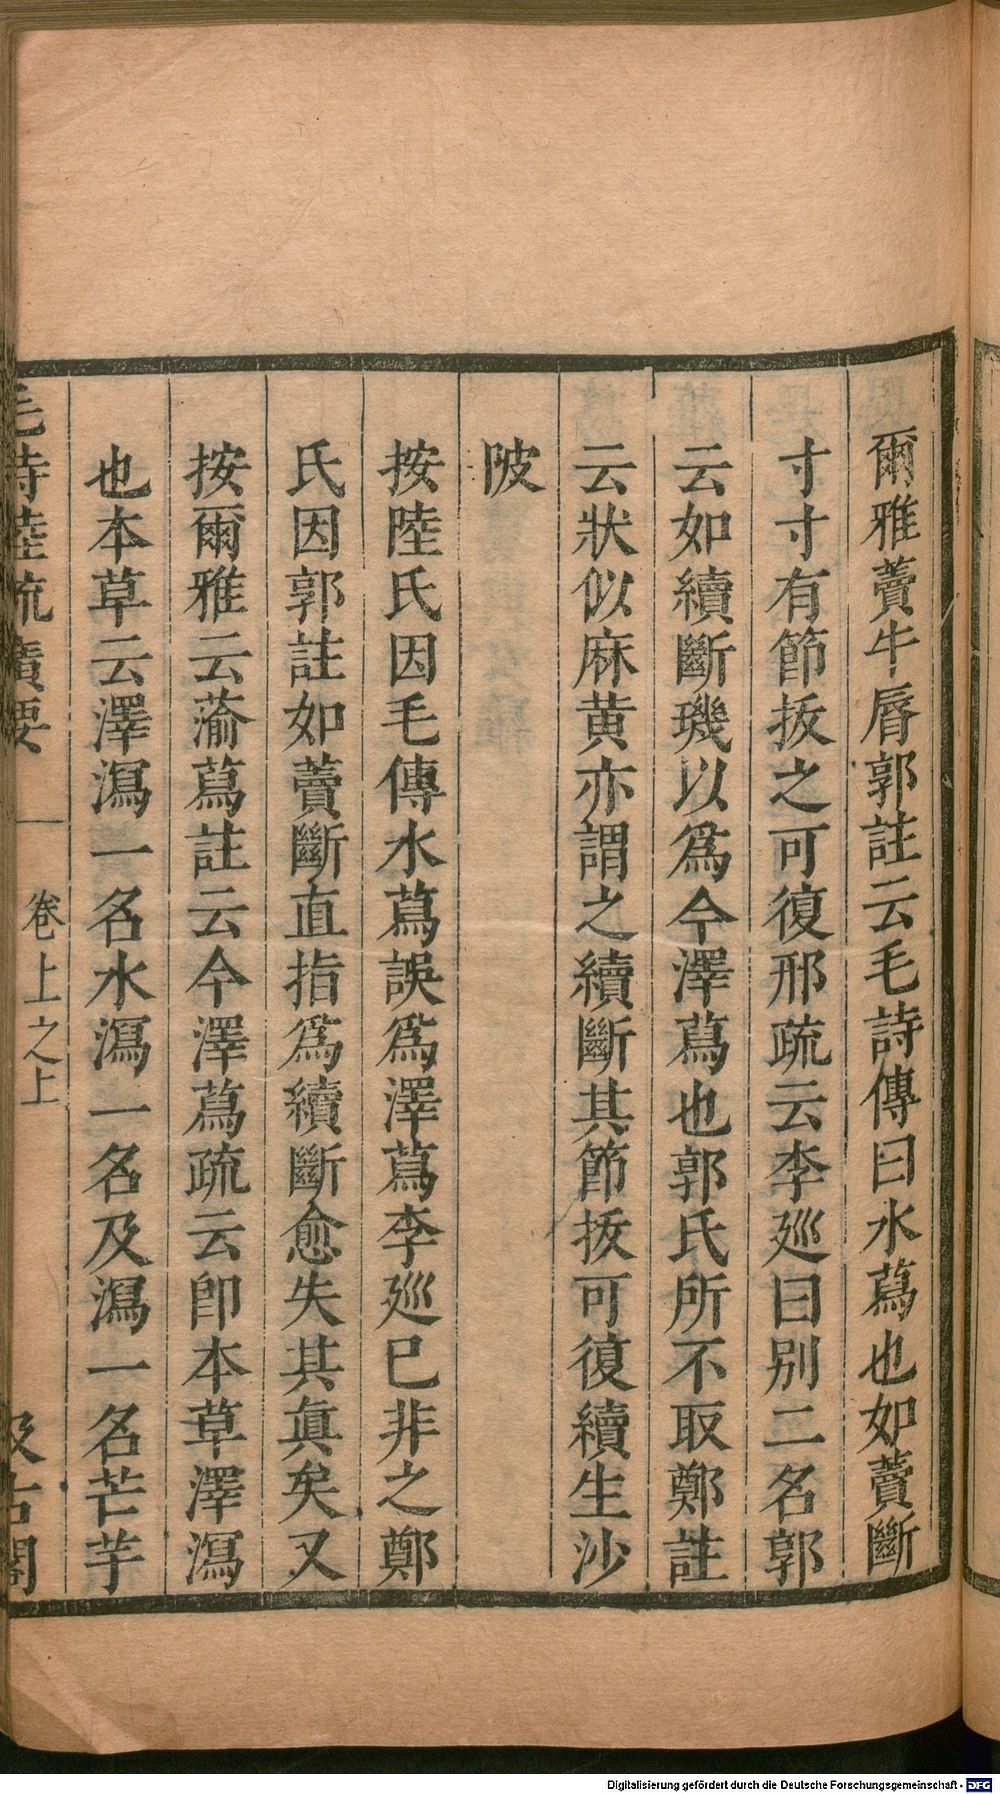 爾雅藚牛脣郭註云毛詩傳曰水蕮也如藚斷
寸寸有節拔之可復邢疏云李廵曰别二名郭
云如續斷璣以爲今澤蕮也郭氏所不取鄭註
云狀似麻黄亦謂之續斷其節拔可復續生沙
陂
按陸氏因毛傳水蕮誤爲澤蕮李廵已非之鄭
氏因郭註如藚斷直指爲續斷愈失其眞矣又
按爾雅云蕍蕮註云今澤蕮疏云卽本草澤瀉
也本草云澤瀉一名水瀉一名及瀉一名芒芋
毛詩陸疏廣要
卷上之上
汲古閣
Digitalisierung gefördert durch die Deutsche Forschungsgemeinschaft - DFG